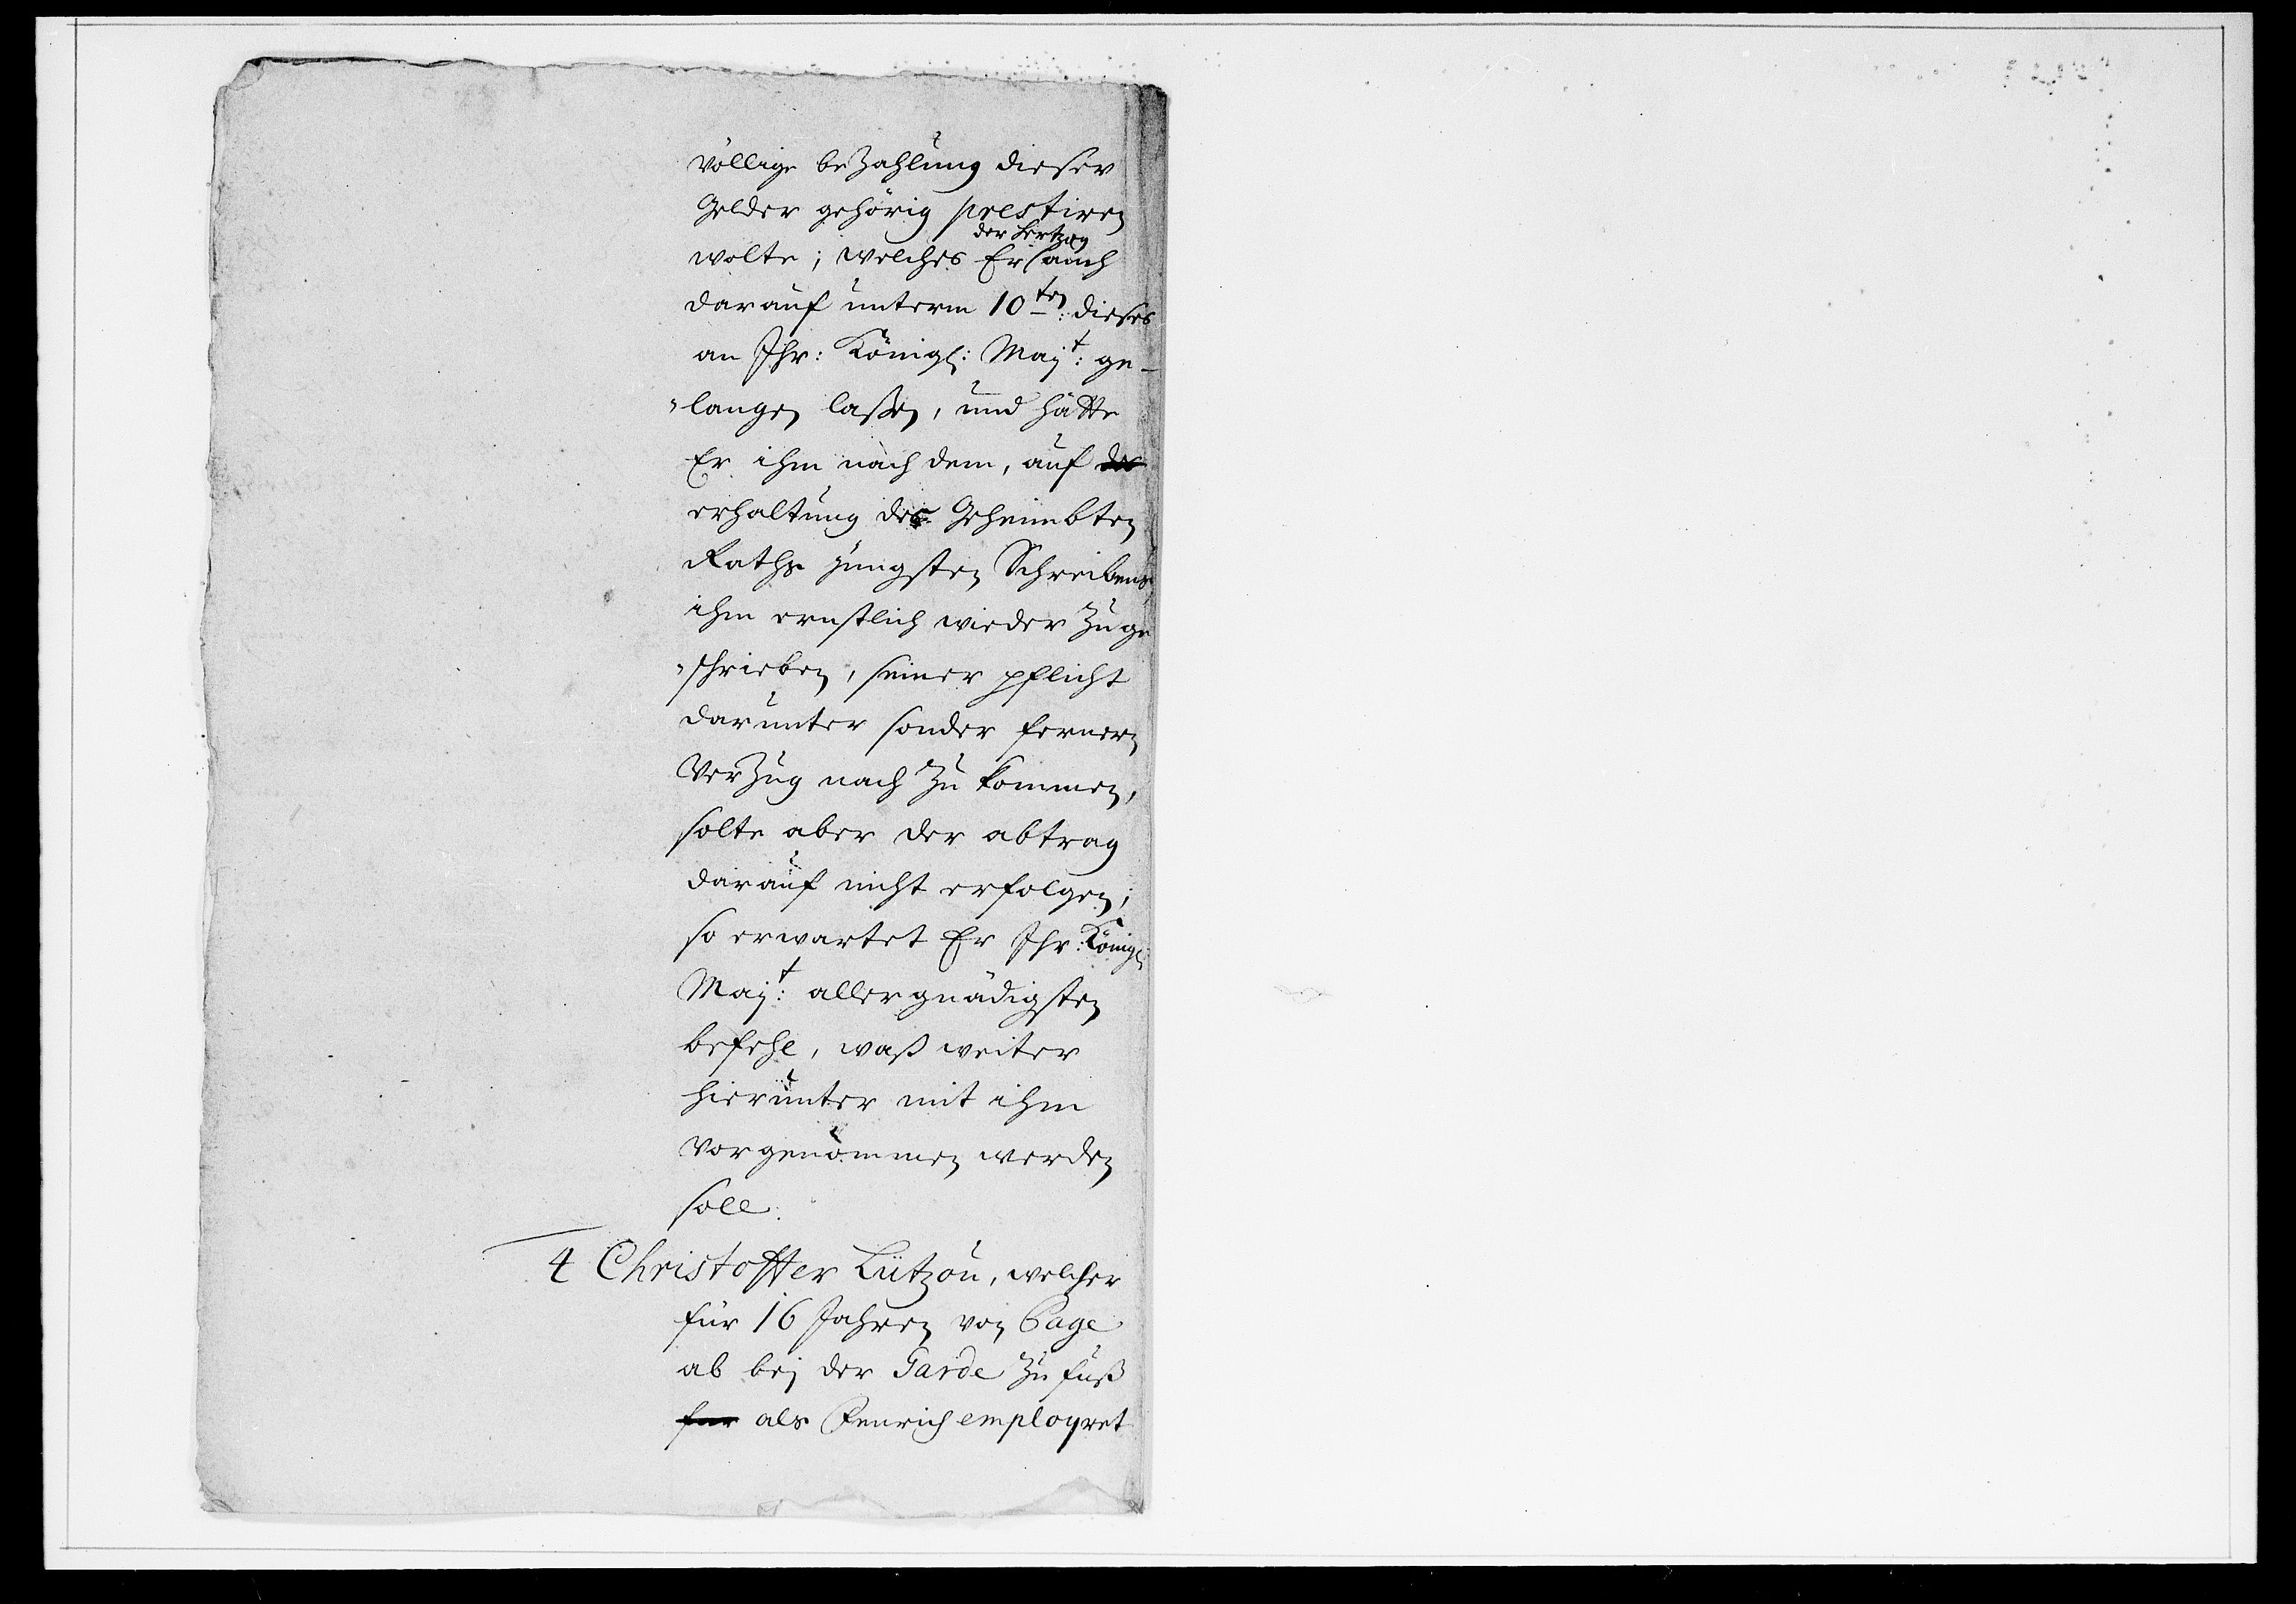 völlige bezahlung dieser
Gelder gehörig prestiren
wolte; welches Er der Hertzog auch
darauf unterm 10ten: dieses
an Ihr: Königl: Mayt: ge-
"langen laßen, und hätte
Er ihm nach dem, auf des
erhaltung des Geheimbten
Raths jüngsten Schreibens
ihm ernstlich wieder zu ge
"schrieben, seiner pflicht
darunter sonder fernern
Verzug nach zu kommen,
solte aber der abtrag
darauf nicht erfolgen;
so erwartet Er Ihr: Königl:
Mayt: allergnädigsten
befehl, waß weiter
hierunter mit ihm
vorgenommen werden
soll.
4 Christoffer Lützou, welcher
für 16 Jahren von Page
ab bej der Garde zu fuß
für als Fenrich employret